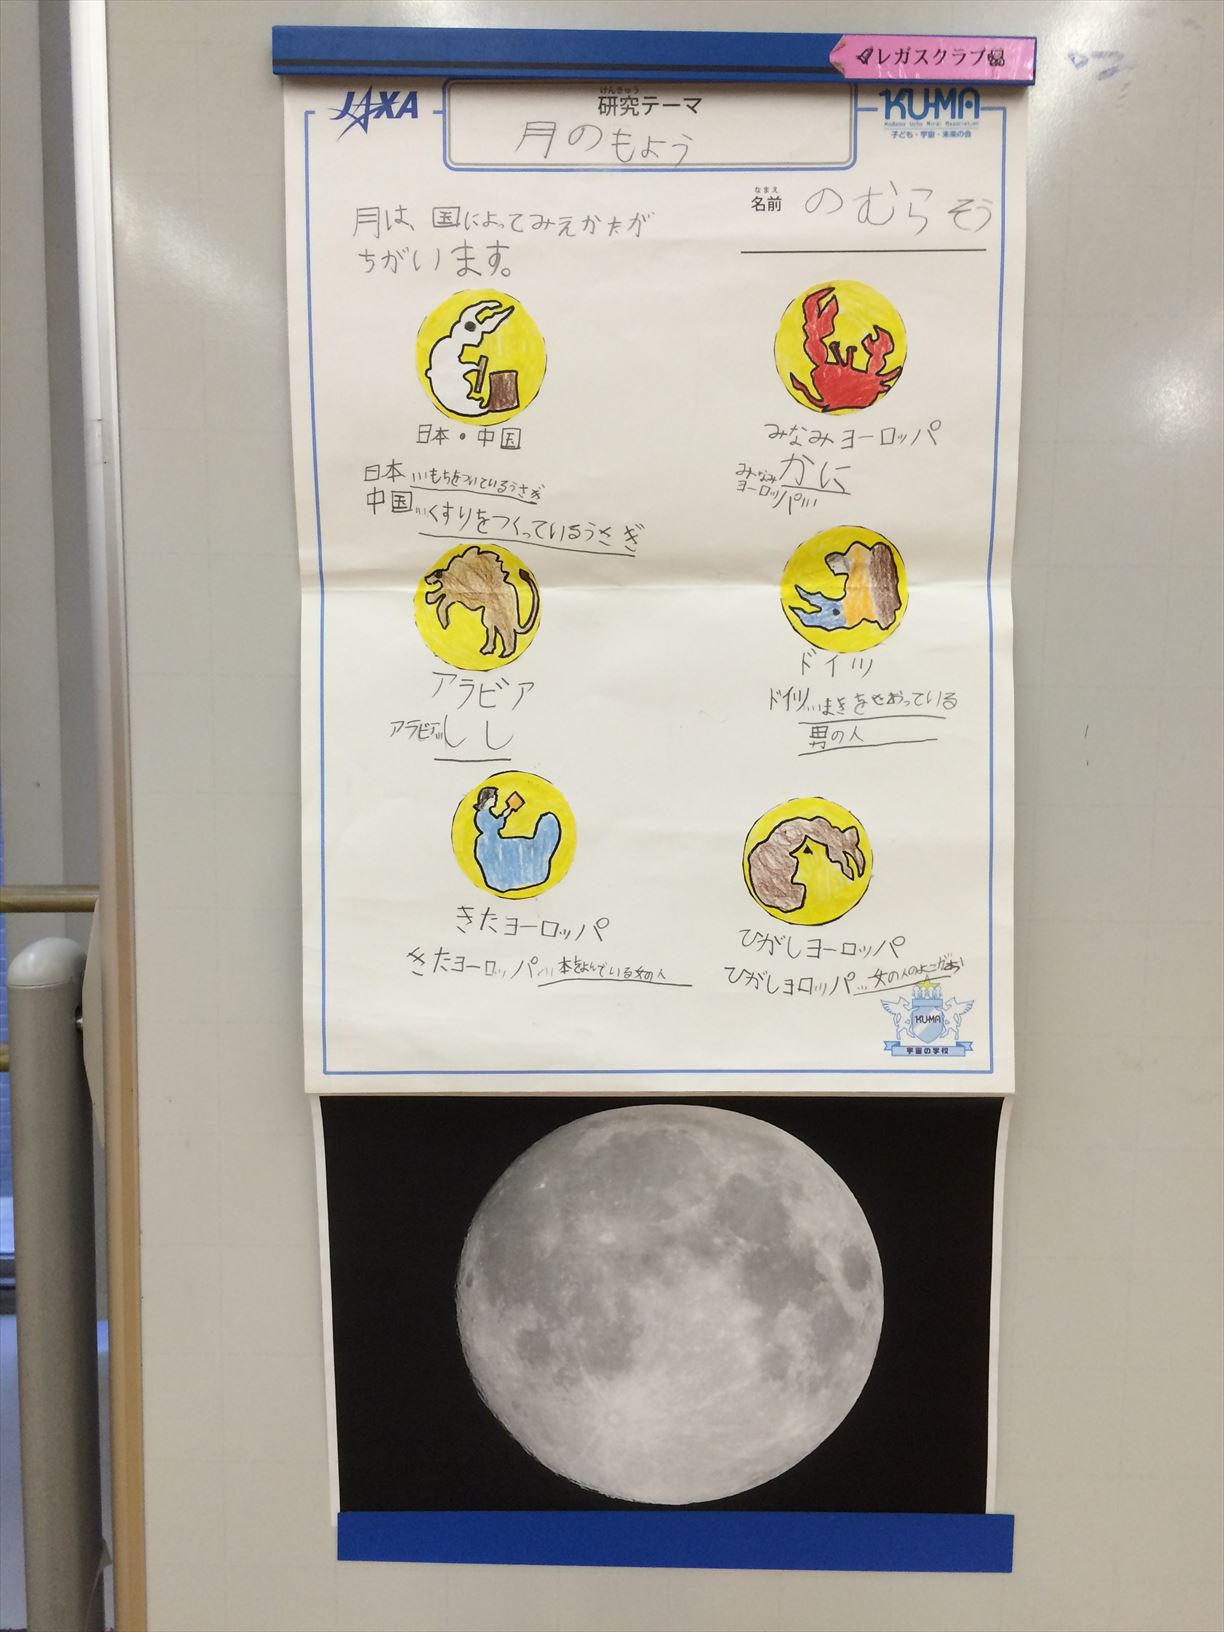 レガスクラブ
JAXA
けんきゅう
研究テーマ
月のもよう
KU-MA
Kodomo Uchu Mirai Association
子ども・宇宙・未来の会
なまえ
名前 のむらそう
月は、国によってみえかたが
ちがいます。
日本・中国
日本…もちをついているうさぎ
中国…くすりをつくっているうさぎ
みなみヨーロッパ
みなみ
ヨーロッパ… かに
アラビア
アラビア…しし
ドイツ
ドイツ…まきをせおっている
男の人
きたヨーロッパ
きたヨーロッパ…本をよんでいる女の人
ひがしヨーロッパ
ひがしヨロッパ…女の人のよこがお
KU-MA
宇宙の学校